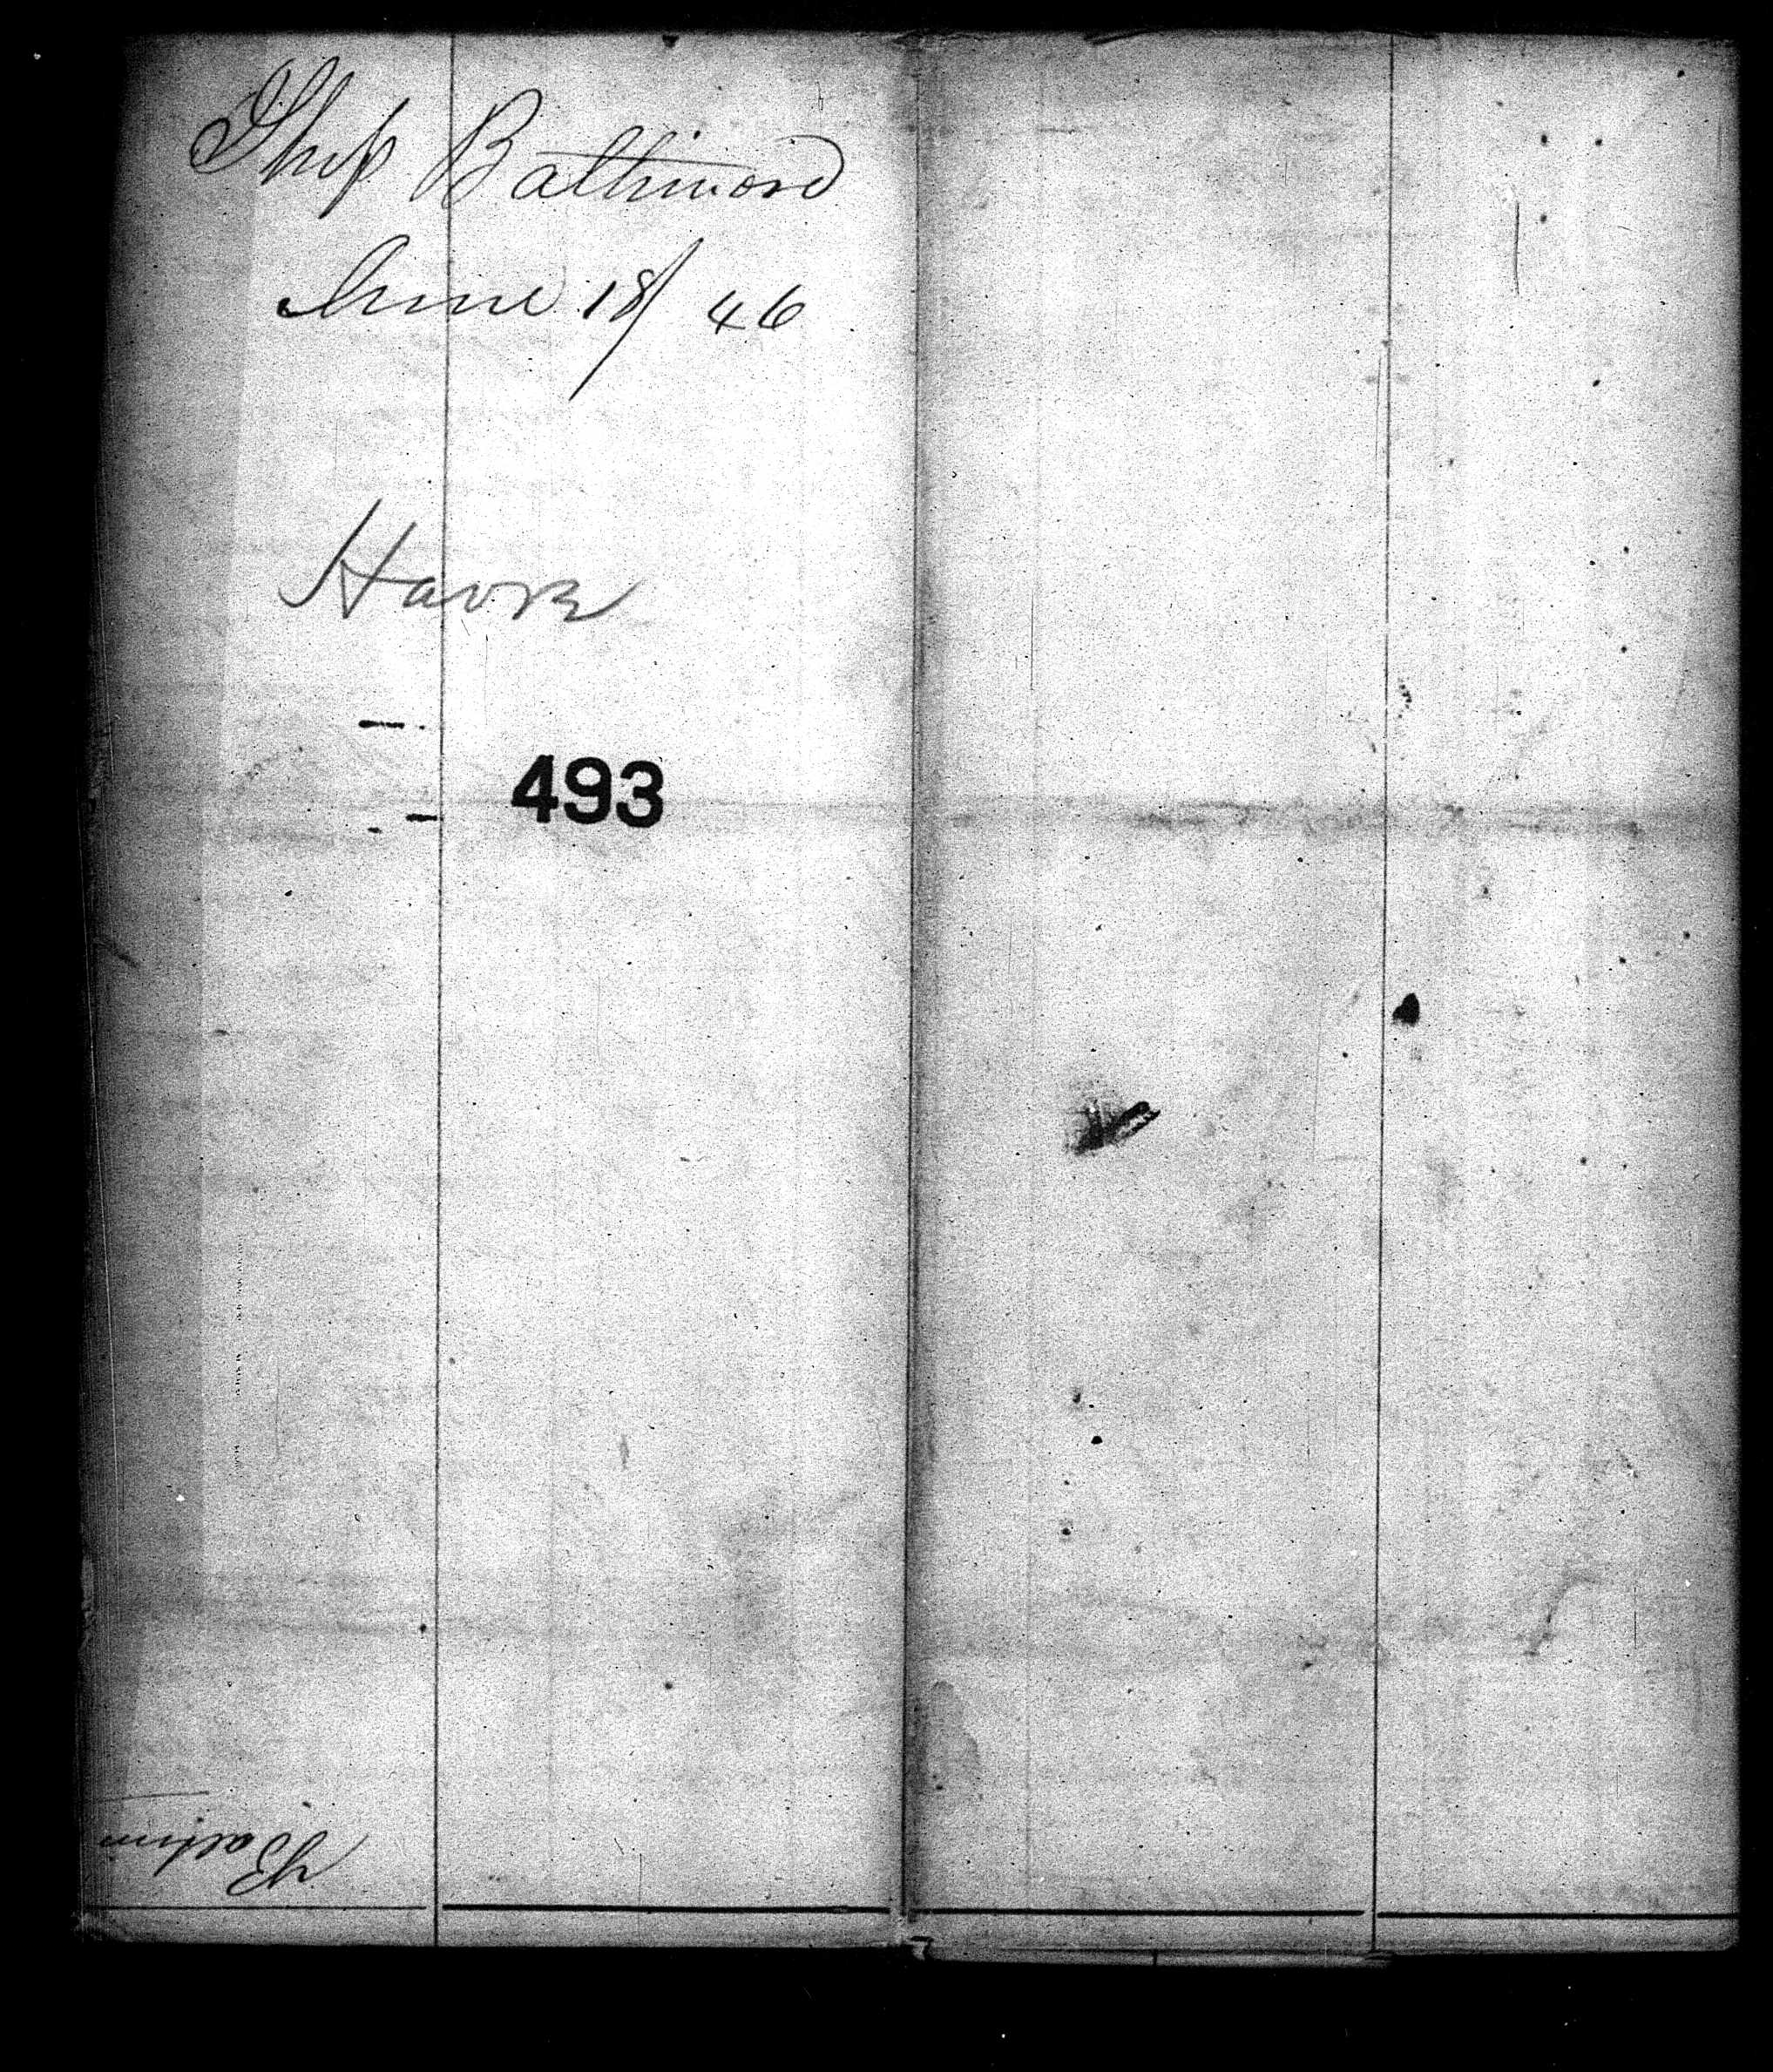 Ship Baltimore
June 18/46
Havre
493